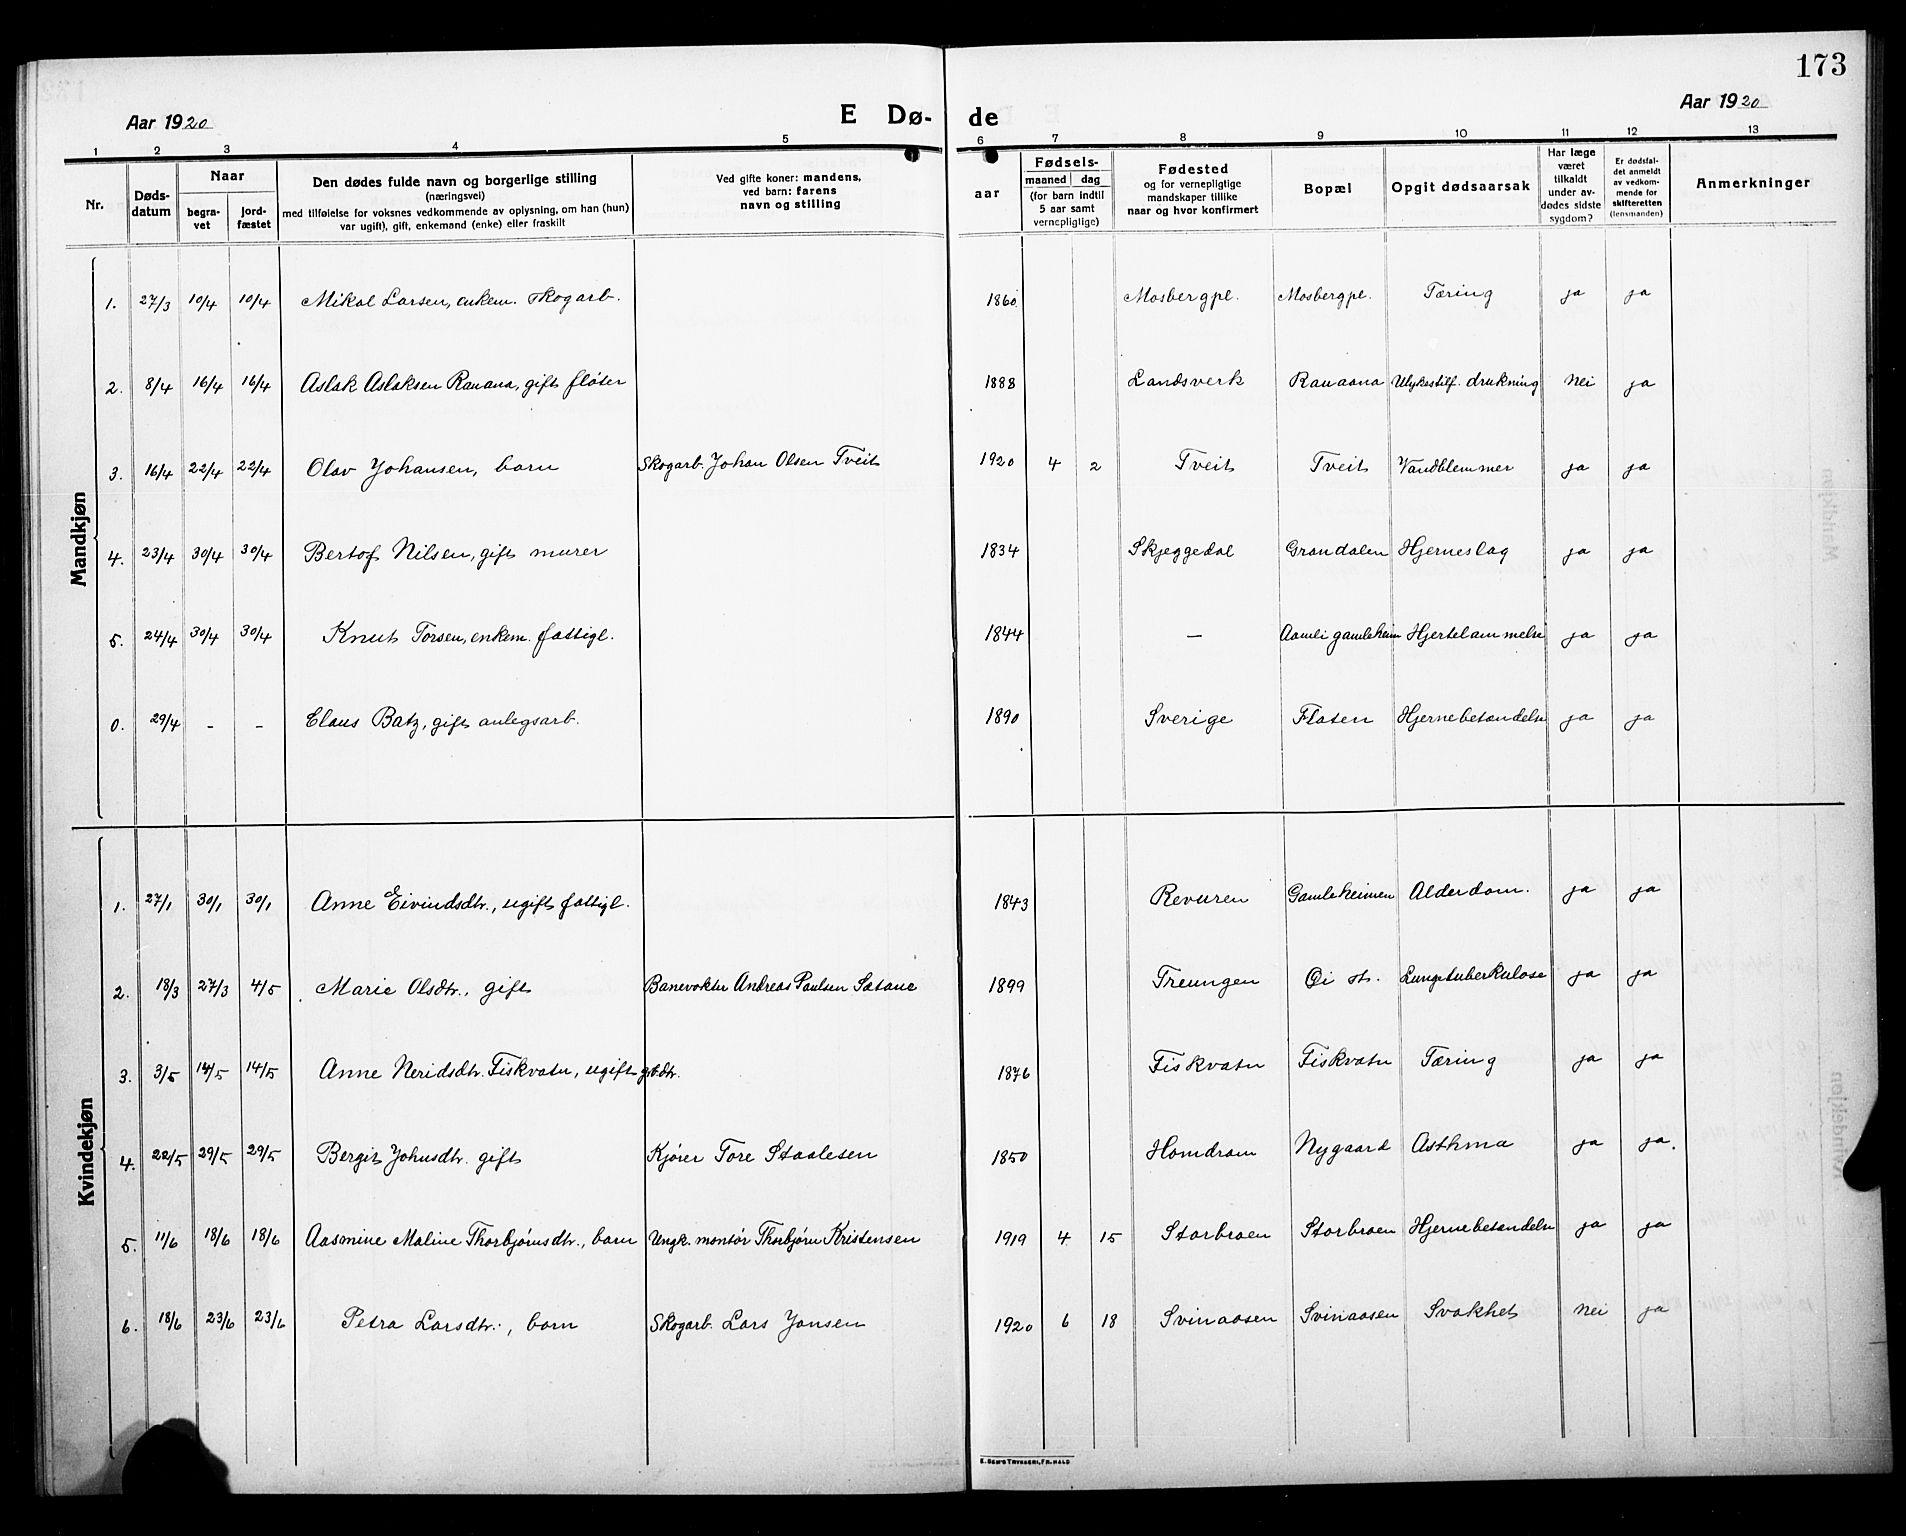 173
Aar 1920
E Dø-
de
Aar 1920
1 2 3 4 5 6 7 8 9 10 11 12 13
Nr.
Døds-
datum
Naar
begra-
vet
jord-
fæstet
Den dødes fulde navn og borgerlige stilling
(næringsvei)
med tilføielse for voksnes vedkommende av oplysning, om han (hun)
var ugift), gift, enkemand (enke) eller fraskilt
Ved gifte koner: mandens,
ved barn: farens
navn og stilling
Fødsels-
aar
maaned dag
(for barn indtil
5 aar samt
vernepligtige)
Fødested
og for vernepligtige
mandskaper tillike
naar og hvor konfirmert
Bopæl
Opgit dødsaarsak
Har læge
været
tilkaldt
under av-
dødes sidste
sygdom?
Er dødsfal-
det anmeldt
av vedkom-
mende for
skifteretten
(lensmanden)
Anmerkninger
Mandkjøn
1. 27/3 10/4 10/4 Mikal Larsen, enkem. skogarb. 1860 Mosbergpl. Mosbergpl. Tæring ja ja
2. 8/4 16/4 16/4 Aslak Aslaksen Rauana, gift fløter 1888 Landsverk Rauaana Ulykestilf. drukning nei ja
3. 16/4 22/4 22/4 Olav Johansen, barn Skogarb. Johan Olsen Tveit 1920 4 2 Tveit Tveit Vandblemmer ja ja
4. 23/4 30/4 30/4 Nilsen, gift murer 1834 Skjeggedal Grandalen Hjerneslag ja ja
5. 24/4 30/4 30/4 Knut Torsen, enkem. fattigl. 1844 — Aamli gamleheim Hjertelammelse ja ja
0. 29/4 - - Claus Batz, gift anlegsarb. 1890 Sverige Flaten Hjernebetændelse ja ja
Kvindekjøn
1. 27/1 30/1 30/1 Anne Eivindsdtr., ugift fattigl. 1843 Revuren Gamleheimen Alderdom. ja ja
2. 18/3 27/3 4/5 Marie Olsdtr., gift Banevokter Andreas Paulsen Sætane 1899 Treungen st. Lungetuberkulose ja ja
3. 3/5 14/5 14/5 Anne Neridsdtr. Fiskvatn, ugift grbdtr. 1876 Fiskvatn Fiskvatn Tæring ja ja
4. 22/5 29/5 29/5 Bergit Johnsdtr. gift Kjører Tore Staalesen 1850 Homdrom Nygaard Asthma ja ja.
5. 11/6 18/6 18/6 Aasmine Maline Thorbjørnsdtr., barn Ungk. montør Thorbjørn Kristensen 1919 4 15 Storbroen Storbroen Hjernebetændelse ja ja
6. 18/6 23/6 23/6 Petra Larsdtr., barn Skogarb. Lars Jansen 1920 6 18 Svinaasen Svinaasen Svakhet nei ja
E. SEM'S TRYKKERI, FR.HALD